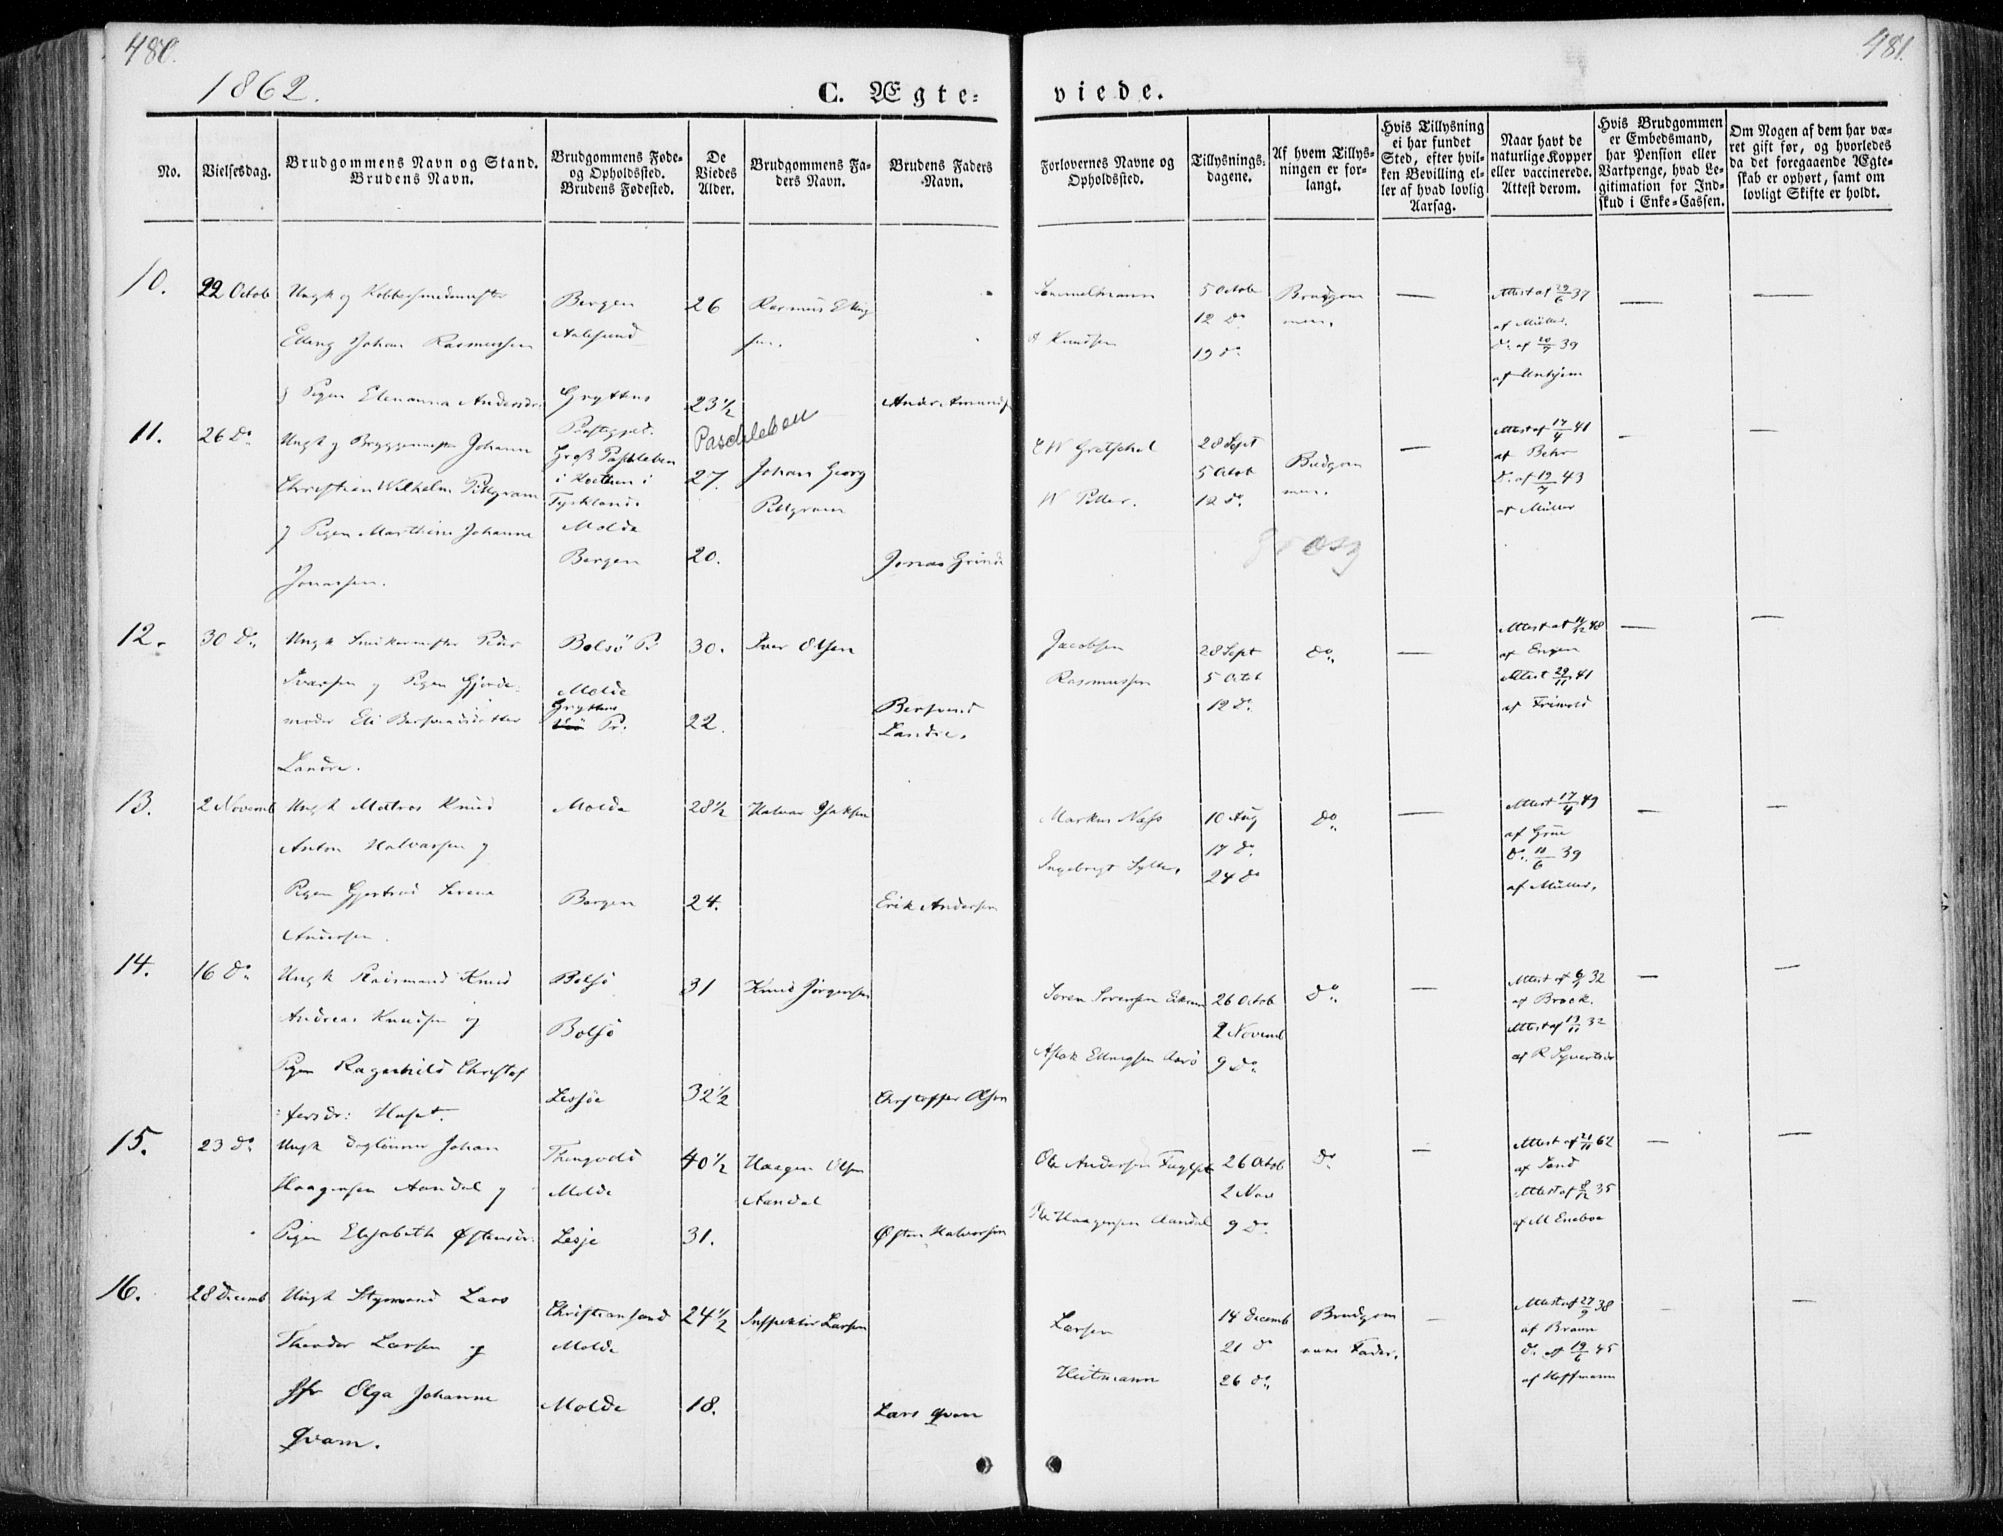 480.
481.
1862.
C. Ægte=
viede.
No.
Vielsesdag.
Brudgommens Navn og Stand.
Brudens Navn.
Brudgommens Føde-
og Opholdssted.
Brudens Fødested.
De
Viedes
Alder.
Brudgommens Fa-
ders Navn.
Brudens Faders
Navn.
Forlovernes Navne og
Opholdssted.
Tillysnings-
dagene.
Af hvem Tillys-
ningen er for-
langt.
Hvis Tillysning
ei har fundet
Sted, efter hvil-
ken Bevilling el-
ler af hvad lovlig
Aarsag.
Naar havt de
naturlige Kopper
eller vaccinerede.
Attest derom.
Hvis Brudgommen
er Embedsmand,
har Pension eller
Vartpenge, hvad Le-
gitimation for Ind-
skud i Enke-Cassen.
Om Nogen af dem har væ-
ret gift før, og hvorledes
da det foregaaende Ægte-
skab er ophørt, samt om
lovligt Skifte er holdt.
10.
22 Octob
Ungk og Kobbersmedmester
Elling Johan Rasmussen
og Pigen Elenanna Andersdr.
Bergen
Aalesund
Gryttens
Præstegjæld.
26
23½
Rasmus Elling
sen.
Anders Amunds
Sammelmann
Knudsen
5 Octob
12 Do
19 do
Brudgom
men.
—
Attest af 29/6 37
af Müller.
Do af 20/9 39
af Unhjem
—
—
11.
26 Do
Ungk og Bryggermester Johann
Christian Wilhelm Pillgram
og Pigen Marthine Johanne
Jonassen.
Groß Paschleben
i Köthen i
Tyskland
Molde
Bergen
Paschleben
27.
20.
Johan Georg
Pillgram
Jonas Grinde
C W Gretschel
W Piller.
28 Sept
5 Octob
12 Do
Brudgom
men.
—
Attest af 17/4 41
af Behr
Do af 19/7 43
af Müller
—
—
12.
30 Do
Ungk Snikermester Peder
Ivarsen og Pigen Gjorde-
moder Eli Bersvendsdatter
Landre.
Bolsö Pr
Molde
Gryttens
Pr.
30.
22.
Iver Olsen
Bersvend
Landre.
Jacobsen
Rasmussen
28 Sept
5 Octob
12 Do
Do
—
Attest af 11/12 48
af Engen
Attest 29/11 41
af Friwold
—
—
13.
2 Novemb
Ungk Matros Knud
Anton Halvarsen og
Pigen Gjertrud Serena
Andersen.
Molde
Bergen
28½
24.
Halvar Isaksen
Erik Andersen
Markus Næss
Ingebrigt Sylte.
10 Aug
17 Do
24 Do
Do
—
Attest 17/4 49
af Grue
Do 11/6 39
af Müller.
—
—
14.
16 Do
Ungk Raadsmand Knud
Andreas Knudsen og
Pigen Ragenhild Christof
fersdr: Haset.
Bolsö
Bolsö
Lessöe
31
32½
Knud Jörgensen
Christoffer Olsen
Soren Sorensen Eikrem
Aslak Ellingsen Aarö
26 Octob
2 Novemb
9 Do
Do
—
Attest af 6/9 32
af Brock.
Attest af 13/11 32
af R Syvertsen
—
—
15.
23 Do
Ungk Daglönner Johan
Haagensen Aandal og
Pigen Elisabeth Østensdr.
Thingvold
Molde
Lesje
40½
31.
Haagen Olsen
Aandal
Østen Halvorsen
Ole Andersen Fuglset
Ole Haagensen Aandal
26 Octob
2 Nov
9 Do
Do
—
Attest af 21/11 62
af Sand
Attest af 8/12 35
af M Eneboe
—
—
16.
28 Decemb
Ungk Styrmand Lars
Theodor Larsen og
Jfr Olga Johanne
Qvam.
Christiansand
Molde
Molde
24½
18.
Inspektør Larsen
Lars Qvam
Larsen
Heitmann
14 Decemb
21 Do
26 Do
Brudgom
mens Fader.
—
Attest af 27/9 38
af Braun
Do af 19/6 45
af Hoffmann
—
—